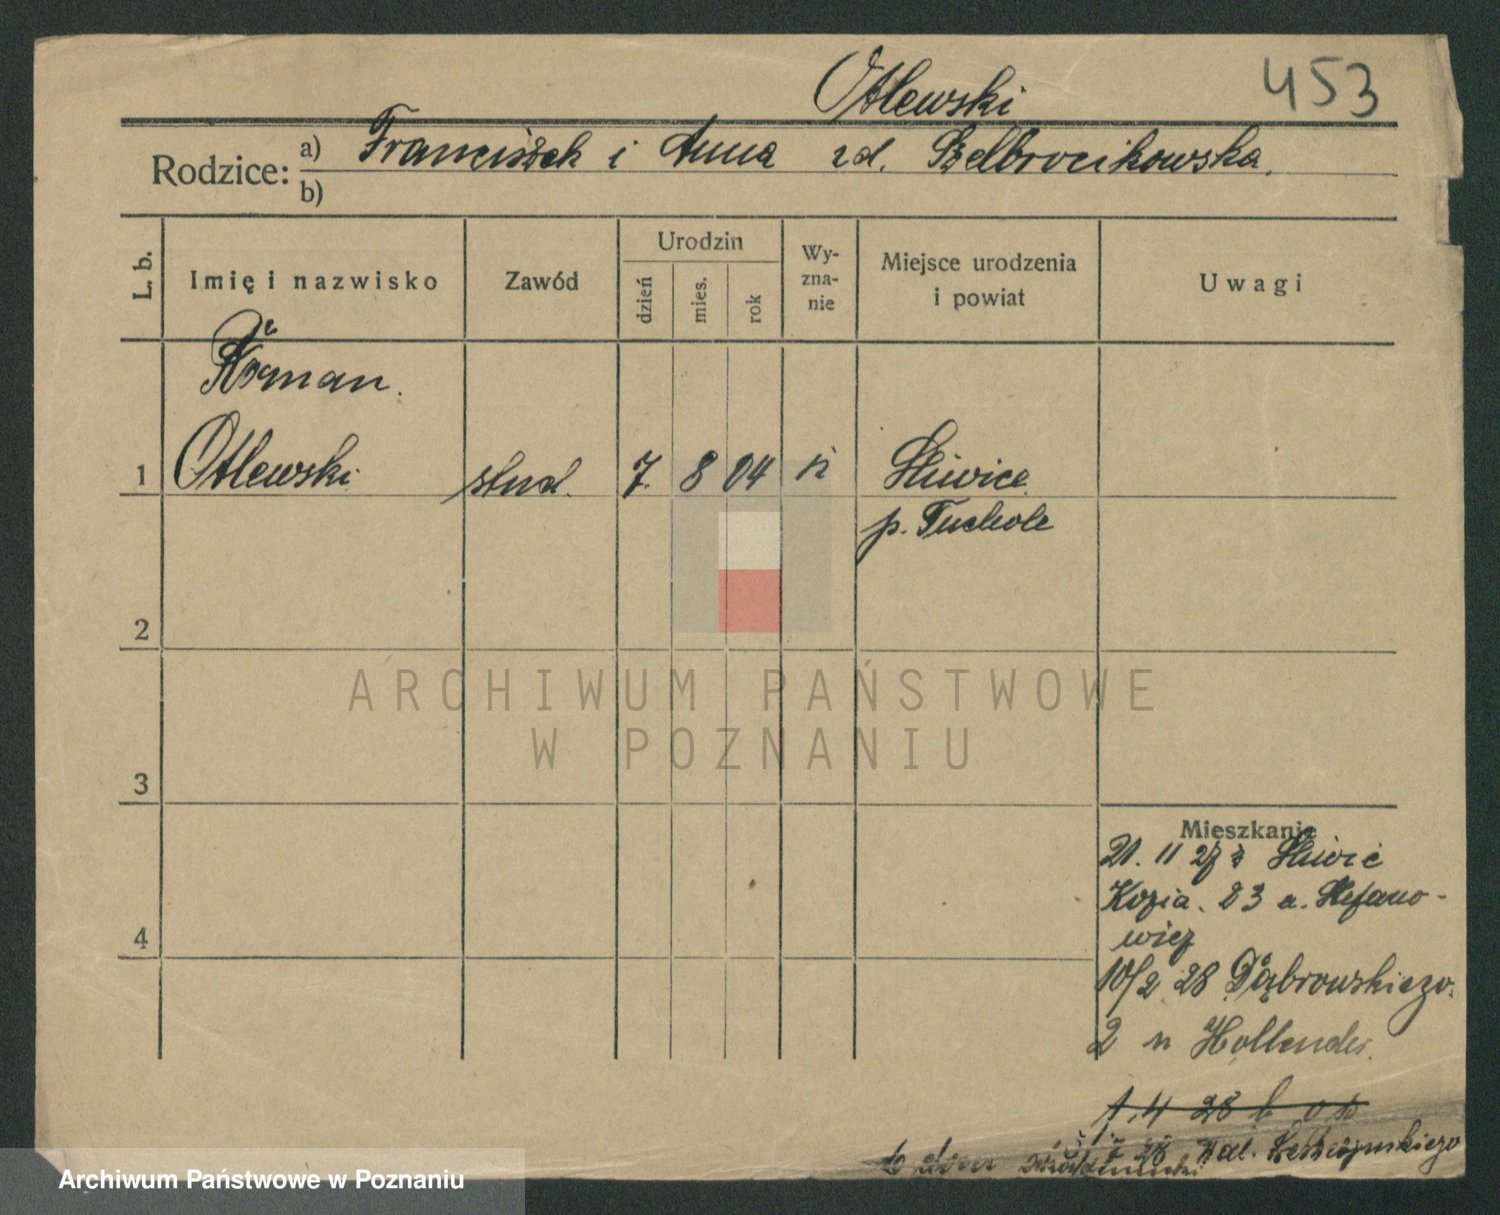 Otlewski
453
Rodzice: a) Franciszek i Anna zd.
b)
L. b.
Imię i nazwisko
Zawód
Urodzin
dzień
mies.
rok
Wy-
zna-
nie
Miejsce urodzenia
i powiat
Uwagi
Roman.
1 Otlewski stud. 7. 8 04 Śliwice
p. Tuchole
2
ARCHIWUM PAŃSTWOWE
W POZNANIU
3
Mieszkanie
21. 11 27 z Śliwic
Kozia. 23 u. Stefano-
wicz
4
10/2 28 Dąbrowskiego.
2 u Hollender.
1.4 28
28
Archiwum Państwowe w Poznaniu